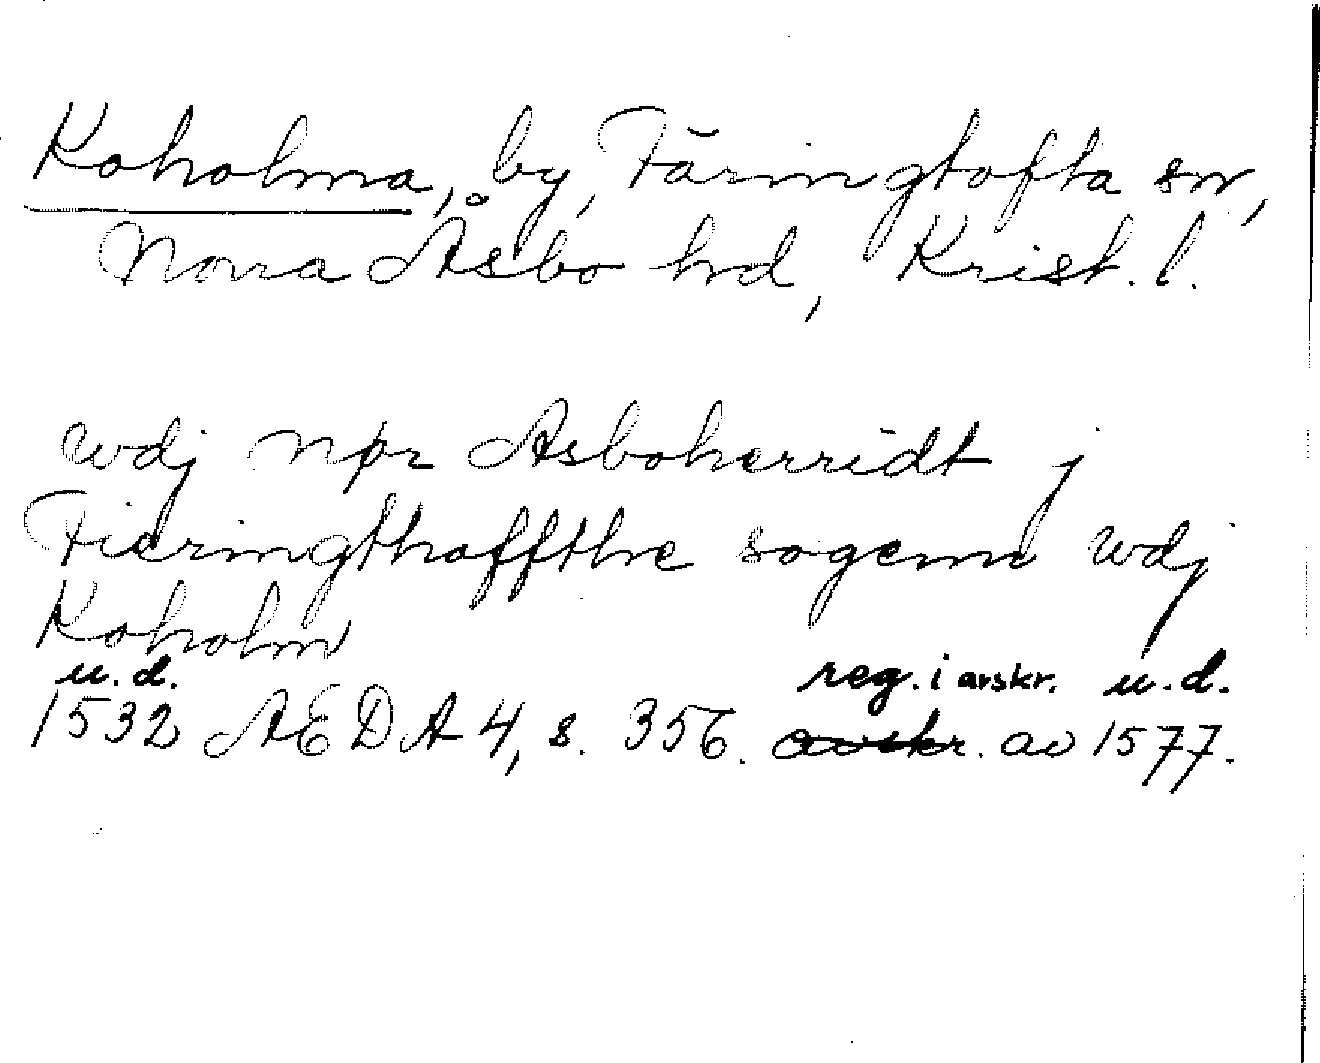 Koholma, by, Färingtofta sn,
Norra Åsbo hd, Krist. l.
wdj npr Asboherridt j
Fieringthoffthe sogenn wdj
Koholm
u.d. reg. i avskr. u.d.
1532 AEDA 4, s. 356. avskr. av 1577.